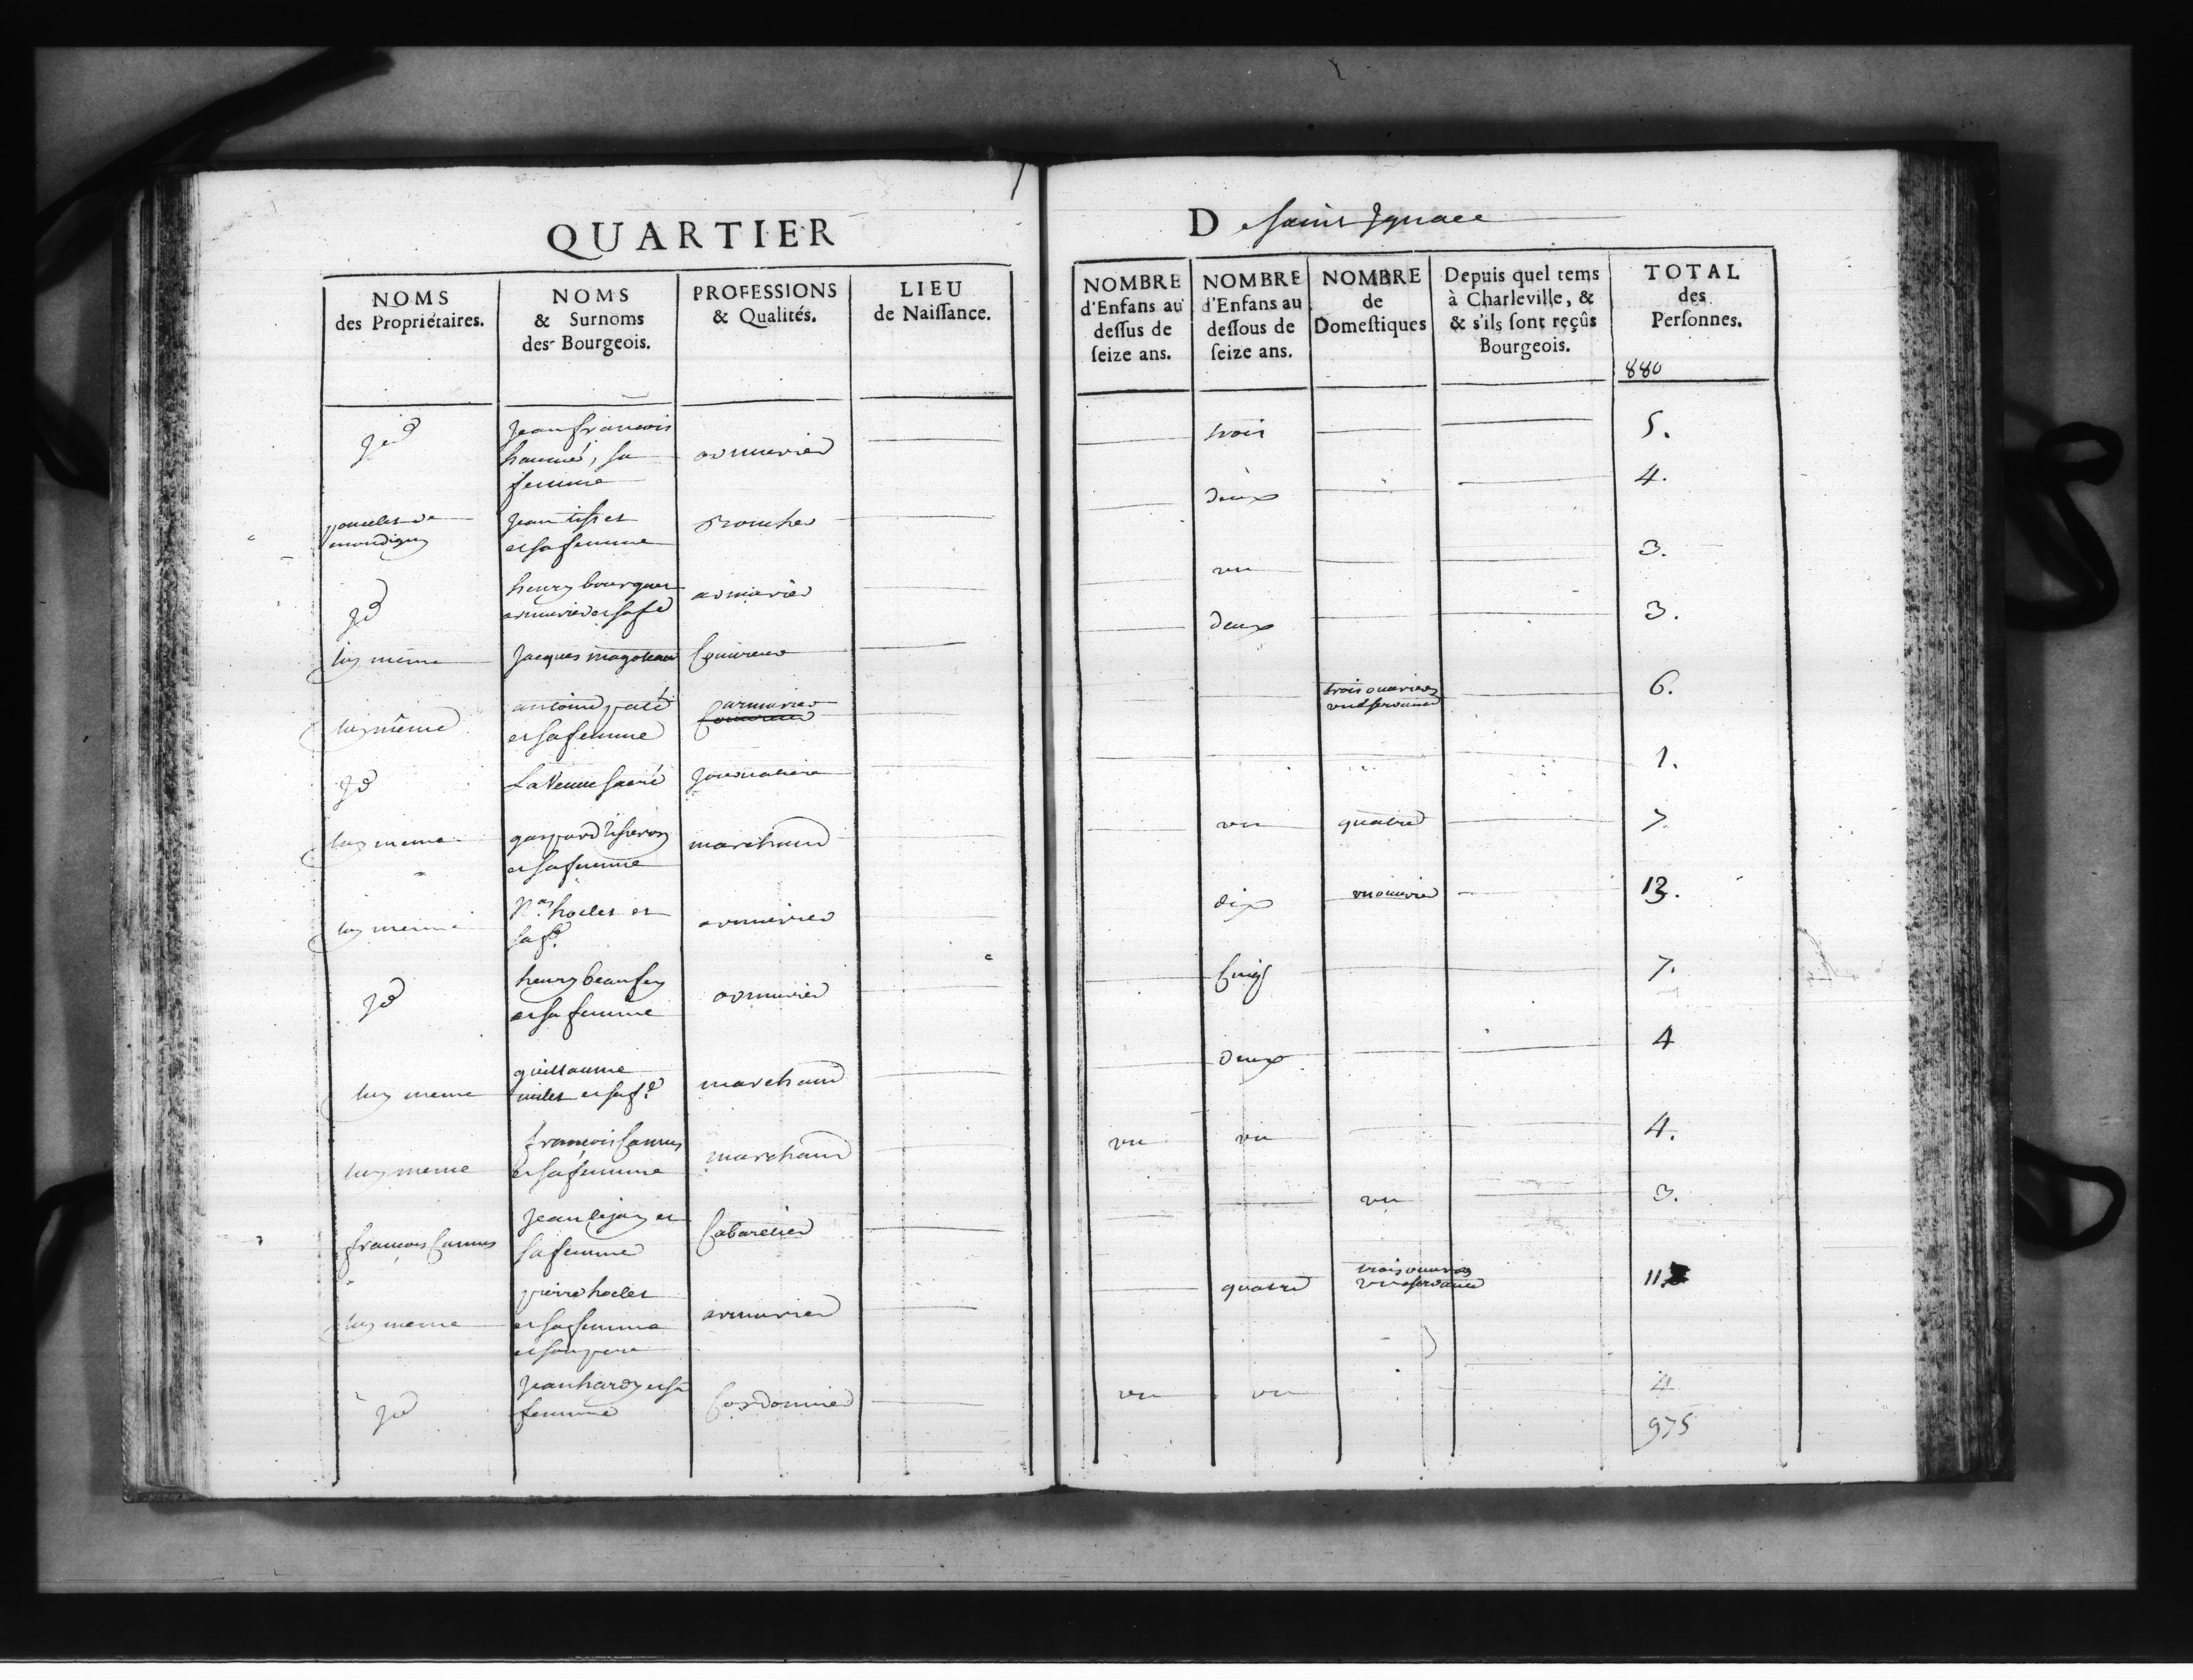 QUARTIER
NOMS
des Propriétaires.
NOMS
& Surnoms
des Bourgeois.
PROFESSIONS
& Qualités.
LIEU
de Naissance.
jd
Jean francois
hanné, sa
femme
armurier
poncelet de
mondigny
Jean tisset
et sa femme
jd
henry bourguet
armurier et sa fe
armurier
luy même
Jacques magoteau
Couvreur
luy même
antoine paté
et sa femme
armurier
Couvreur
jd
La Veuve
Journaliere
luy meme
gaspard tisseron
et sa femme
marchand
luy meme
Nas. hoclet et
sa fe.
armurier
jd
henry beaufey
et sa femme
armurier
luy meme
guillaume
milet et sa fe.
marchand
luy meme
francois Camus
et sa femme
marchand
francois Camus
Jean lejay et
sa femme
Cabaretier
luy meme
pierre hoclet
et sa femme
et son pere
armurier
jd
Jean hardy et sa
femme
Cordonnier
D e Saint Ignace
NOMBRE
d'Enfans au
dessus de
seize ans.
NOMBRE
d'Enfans au
dessous de
seize ans.
NOMBRE
de
Domestiques
Depuis quel tems
à Charleville, &
& s'ils sont reçûs
Bourgeois.
TOTAL
des
Personnes.
880
trois 5.
deux 4.
un 3.
deux 3.
trois ouvriers
une servante
6.
1.
un quatre 7
dix un ouvrier 13.
Cinq 7.
deux 4
un un 4.
un 3.
quatre
trois ouvriers
une servante
11
un un 4
975